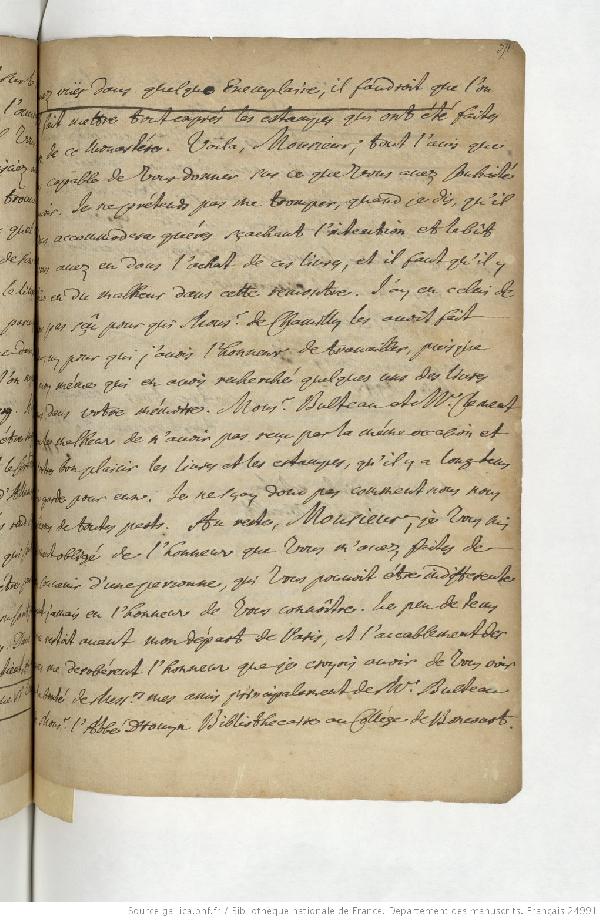 dans quelque Exemplaire, il faudroit que l'on
fait mettre tout auprés les estampes qui ont été faites
de ce Monastére. Voila, Monsieur, tout l'avis que
capable de Vous donner sur ce que Vous avez souhaité
Je ne prétends pas me tromper, quand je dis, qu'il
accommodera guéres sçachant l'intention et le but
avez eu dans l'achat de ces livres, et il faut qu'il y
eu du malheur dans cette rencontre. J'ay eu celui de
pas sçû pour qui Mons.r de Chamilly les avoit fait
pour qui j'avois l'honneur de travailler, puis que
même qui en avois recherché quelques uns des livres
dans votre mémoire. Mons.r Bulteau et M.r Clement
malheur de n'avoir pas reçu par la même occasion et
bon plaisir les livres et les estampes, qu'il y a long tems
garde pour eux. Je ne sçay donc pas comment nous nous
de toutes parts. Au reste, Monsieur, je Vous suis
obligé de l'honneur que Vous m'avez faites de
d'une personne, qui Vous pouvoit être indifferente
jamais eu l'honneur de Vous connoître. Le peu de tems
restoit avant mon départ de Paris, et l'accablement des
me derobérent l'honneur que je croyois avoir de Vous voir
de Mess.rs mes amis principalement de M.r Bulteau
Mons.r l'Abbé Drouyn Bibliothecaire au Collége de Boncourt.
Source gallica.bnf.fr / Bibliothèque nationale de France. Département des manuscrits. Français 24991